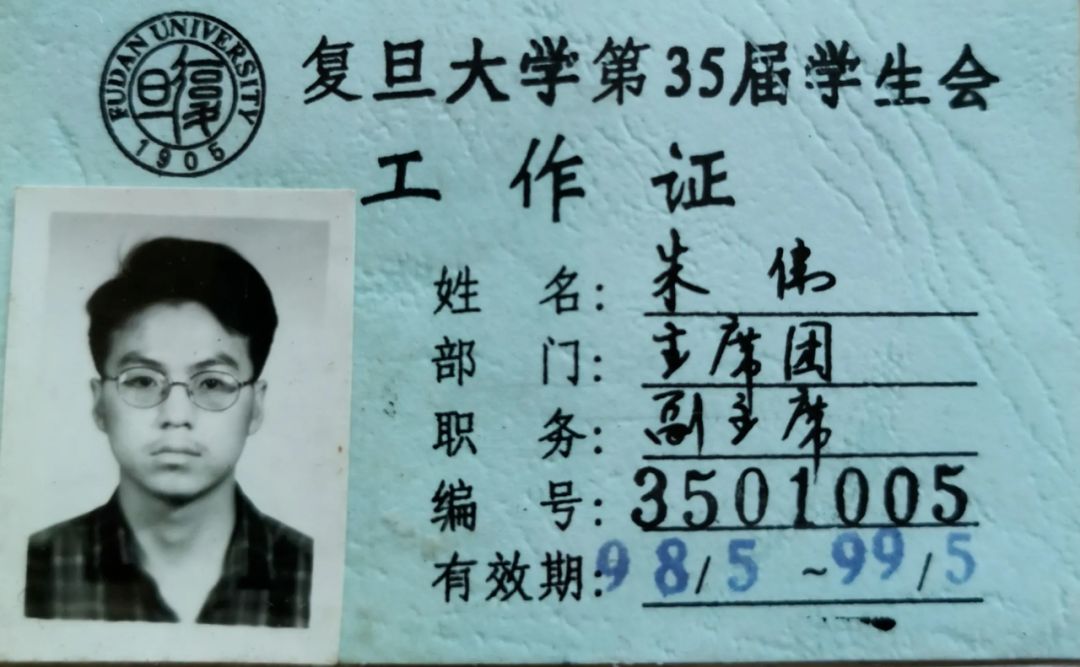 FUDAN UNIVERSITY
復旦
1905
复旦大学第35届学生会
工作证
姓 名: 朱 伟
部 门: 主席团
职 务: 副主席
编 号: 3501005
有效期: 98/5 ~99/5